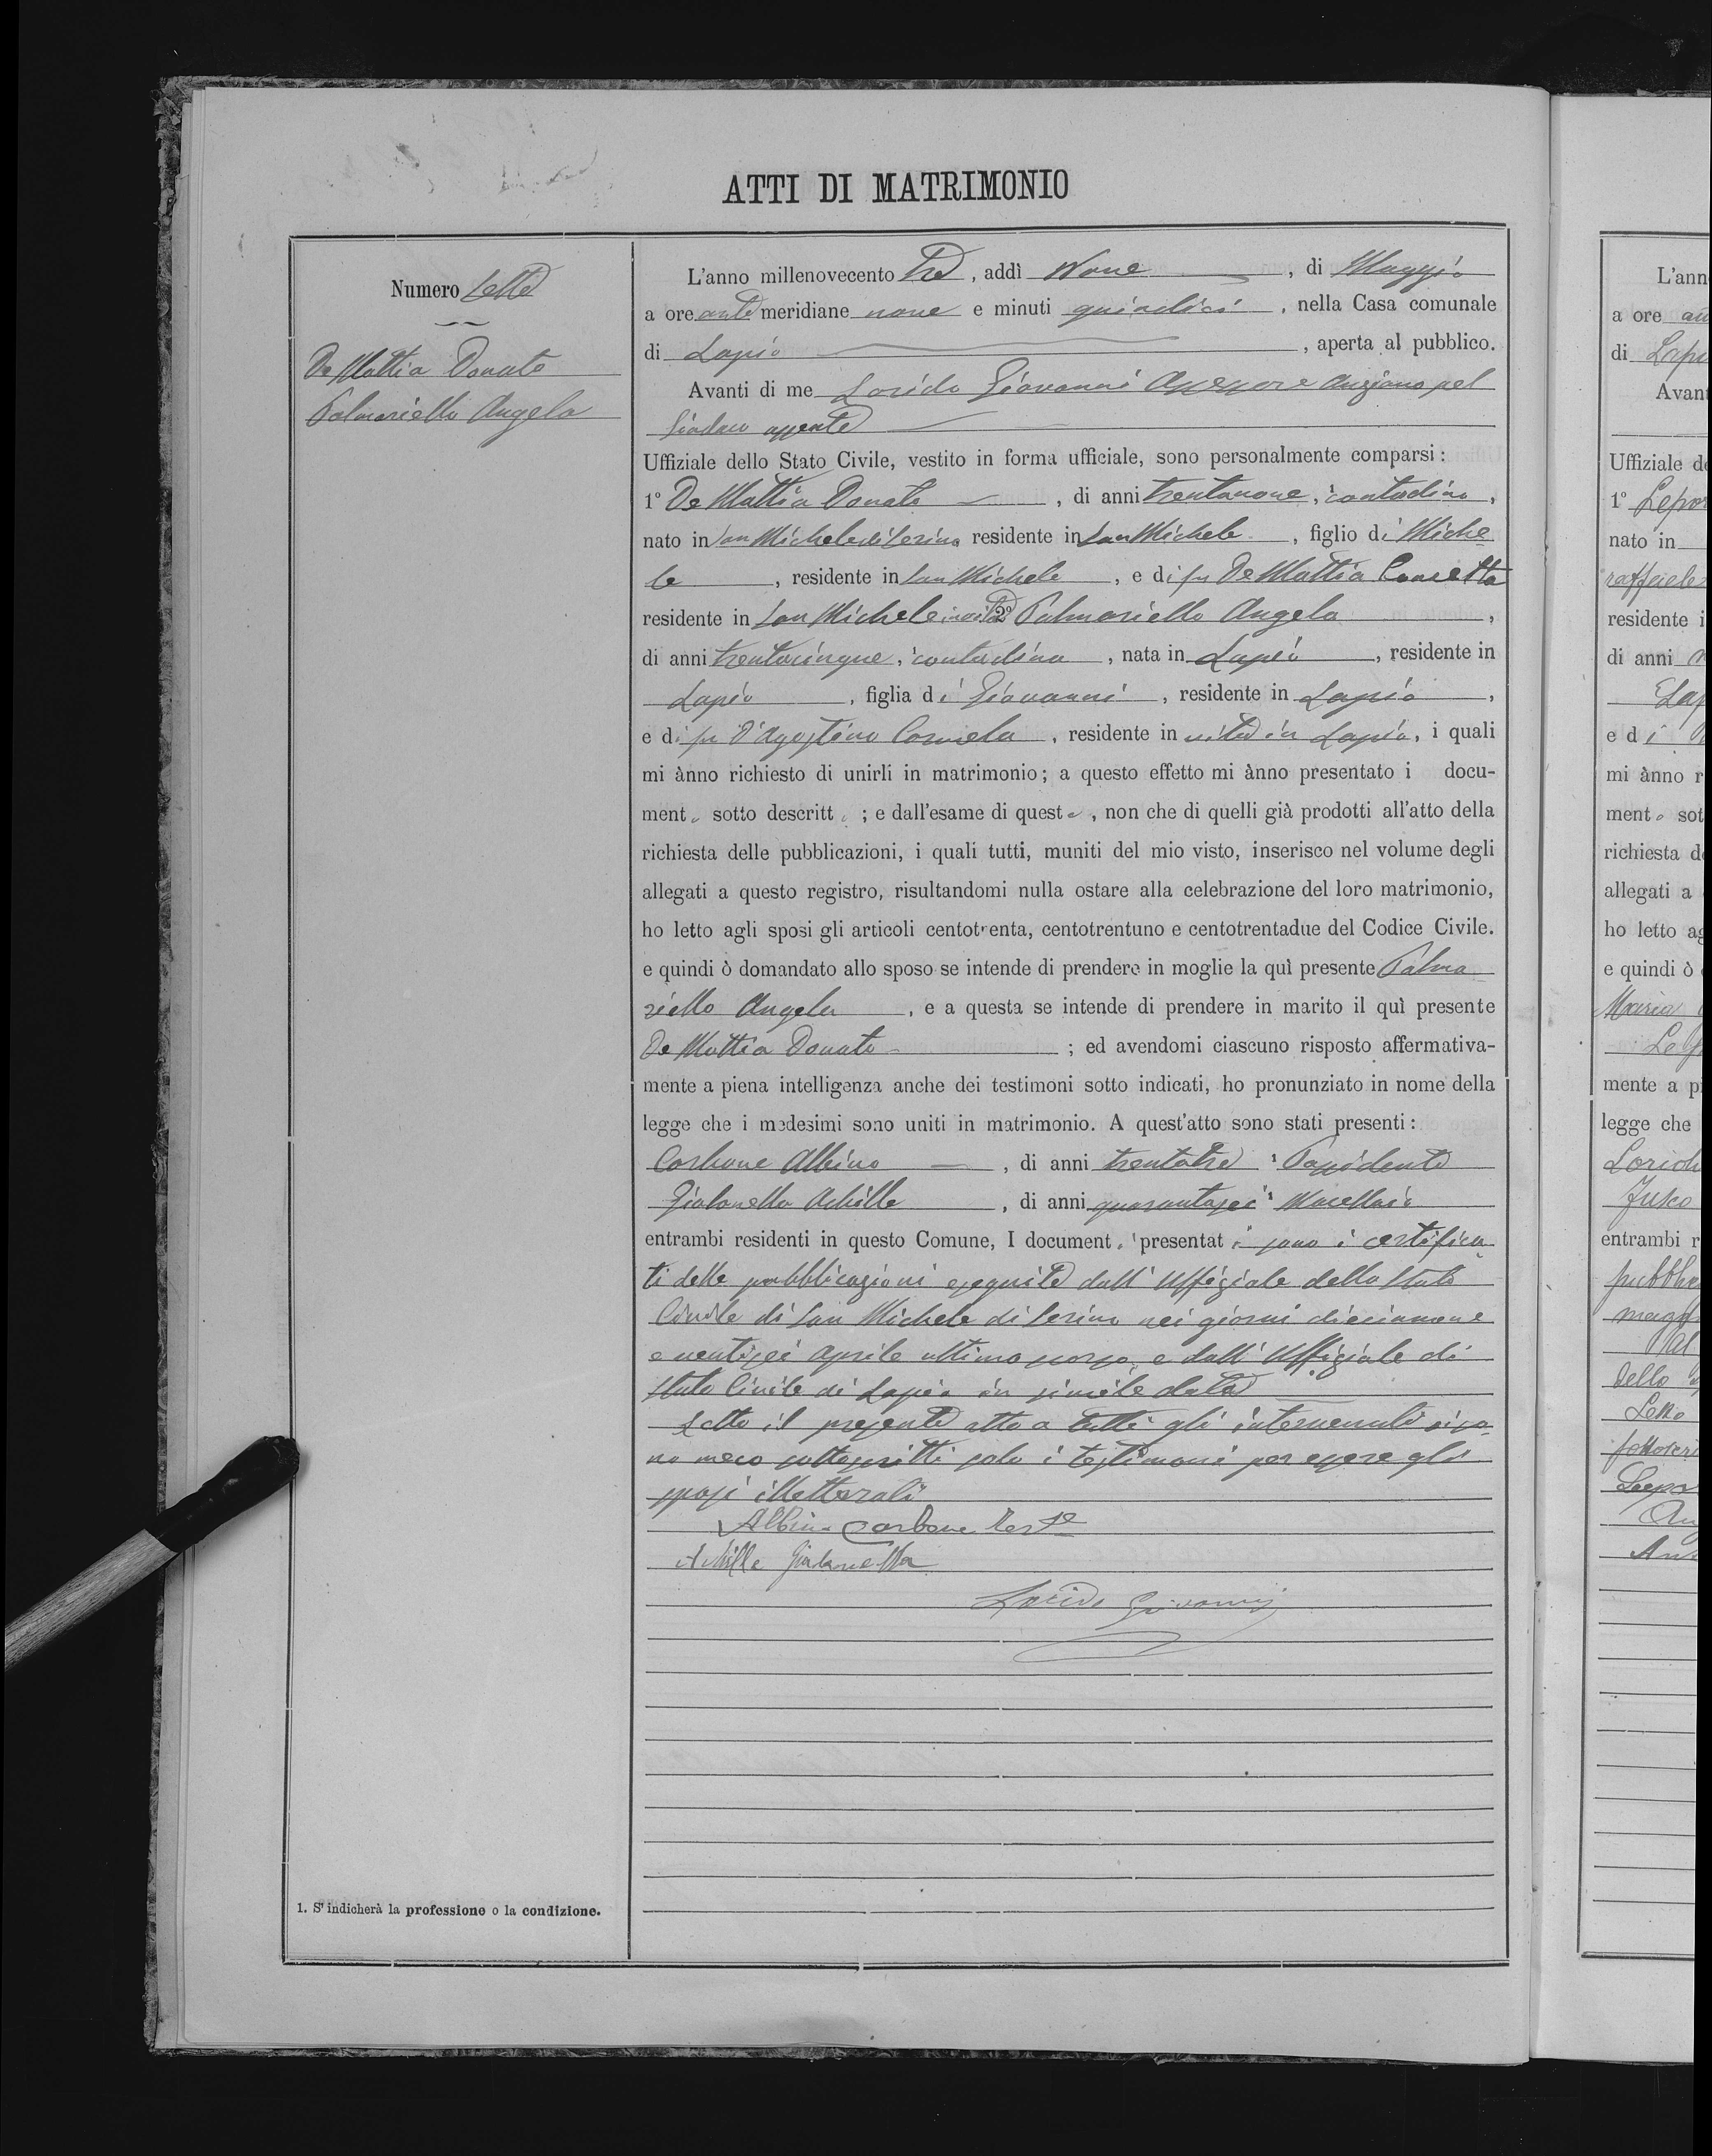 ATTI DI MATRIMONIO
Numero Sette
De Mattia Donato
Palmariello Angela
L'anno millenovecento tre, addì Nove, di Maggio
a ore antemeridiane nove e minuti quindici, nella Casa comunale
di Lapio, aperta al pubblico.
Avanti di me Lorido Giovanni Assessore Anziano pel
Sindaco assente
Uffiziale dello Stato Civile, vestito in forma ufficiale, sono personalmente comparsi:
1° De Mattia Donato, di anni trentanove, ¹contadino,
nato in San Michele di Serino residente in San Michele, figlio di Miche
le, residente in San Michele, e di fu De Mattia Concetta
residente in San Michele in vita 2° Palmariello Angela,
di anni trentacinque, ¹contadina, nata in Lapio, residente in
Lapio, figlia di Giovanni, residente in Lapio,
e di fu D'Agostino Carmela, residente in vita in Lapio, i quali
mi ànno richiesto di unirli in matrimonio; a questo effetto mi ànno presentato i docu-
ment sotto descritt ; e dall'esame di quest , non che di quelli già prodotti all'atto della
richiesta delle pubblicazioni, i quali tutti, muniti del mio visto, inserisco nel volume degli
allegati a questo registro, risultandomi nulla ostare alla celebrazione del loro matrimonio,
ho letto agli sposi gli articoli centotrenta, centotrentuno e centotrentadue del Codice Civile.
e quindi ò domandato allo sposo se intende di prendere in moglie la quì presente Palma
riello Angela, e a questa se intende di prendere in marito il quì presente
De Mattia Donato ; ed avendomi ciascuno risposto affermativa-
mente a piena intelligenza anche dei testimoni sotto indicati, ho pronunziato in nome della
legge che i medesimi sono uniti in matrimonio. A quest'atto sono stati presenti:
Carbone Albino, di anni trentatre ¹ Possidente
Gialanella Achille, di anni quarantasei ¹ Macellaio
entrambi residenti in questo Comune, I document presentati sono i certifica
ti delle pubblicazioni eseguite dall'Uffiziale dello Stato
Civile di San Michele di Serino nei giorni diciannove
e ventisei Aprile ultimo scorso, e dall'Uffiziale di
Stato Civile di Lapio in simile data
Letto il presente atto a tutti gli intervenuti si so
no meco sottoscritti solo i testimoni per essere gli
sposi illetterati
Albino Carbone Teste
Achille Gialanella
Lorido Giovanni
1. S'indicherà la professione o la condizione.
L'ann
a ore an
di Lapi
Avant
Uffiziale de
1° Lepor
nato in
raffaele
residente i
di anni
Lap
e di
mi ànno r
ment sot
richiesta de
allegati a
ho letto ag
e quindi ò
Maria
mente a pi
legge che
Lorid
Fusco
entrambi r
pubblic
dello
Letto
sottoscri